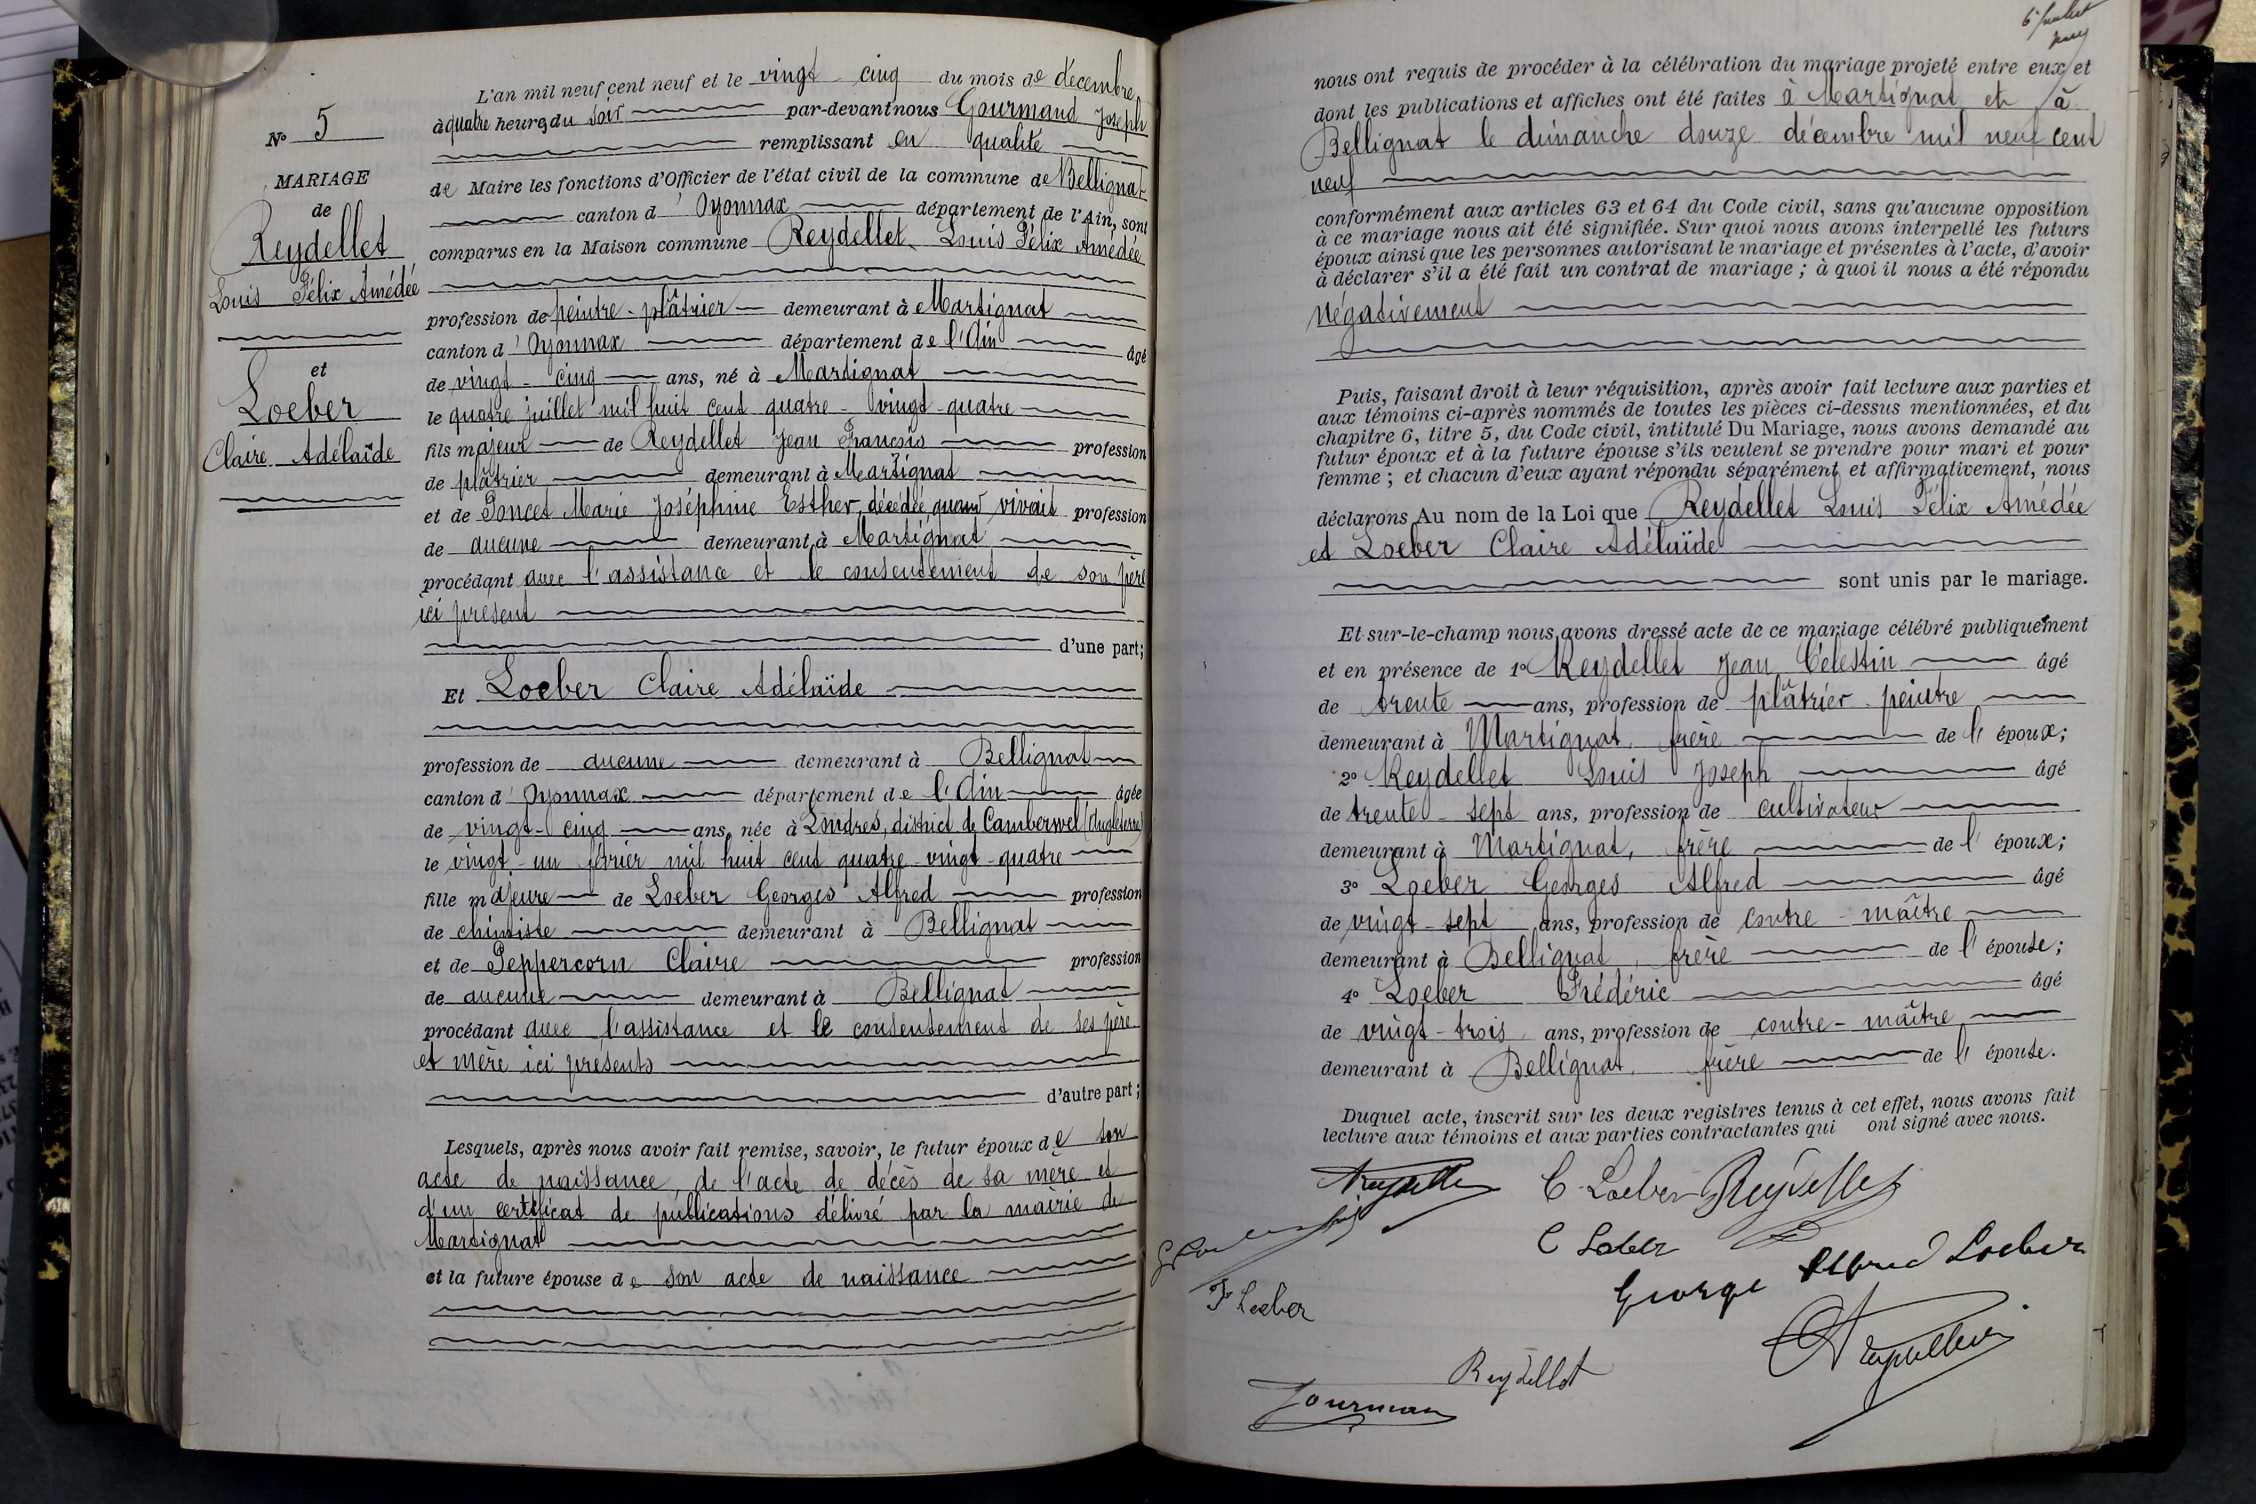 L'an mil neuf cent neuf et le vingt-cinq du mois de décembre
à quatre heures du soir par-devant nous Gourmand Joseph
N° 5
remplissant en qualité
MARIAGE
de Maire les fonctions d'Officier de l'état civil de la commune de Bellignat
de
canton d'Oyonnax département de l'Ain, sont
Reydellet
comparus en la Maison commune Reydellet Louis Félix Amédée
Louis Félix Amédée
profession de peintre-plâtrier demeurant à Martignat
canton d'Oyonnax département de l'Ain âgé
et
de vingt-cinq ans, né à Martignat
Loeber
le quatre juillet mil huit cent quatre-vingt-quatre
Claire Adélaïde
fils majeur de Reydellet Jean François profession
de plâtrier demeurant à Martignat
et de Poncet Marie Joséphine Esther, décédée, quand vivait profession
de aucune demeurant à Martignat
procédant avec l'assistance et le consentement de son père
ici présent
d'une part;
Et Loeber Claire Adélaïde
profession de aucune demeurant à Bellignat
canton d'Oyonnax département de l'Ain âgée
de vingt-cinq ans, née à Londres, district de Camberwel (Angleterre)
le vingt-un février mil huit cent quatre-vingt-quatre
fille majeure de Loeber Georges Alfred profession
de chimiste demeurant à Bellignat
et de Peppercorn Claire profession
de aucune demeurant à Bellignat
procédant avec l'assistance et le consentement de ses père
et mère ici présents
d'autre part;
Lesquels, après nous avoir fait remise, savoir, le futur époux de son
acte de naissance, de l'acte de décès de sa mère et
d'un certificat de publications délivré par la mairie de
Martignat
et la future épouse de son acte de naissance
nous ont requis de procéder à la célébration du mariage projeté entre eux et
dont les publications et affiches ont été faites à Martignat et à
Bellignat le dimanche douze décembre mil neuf cent
neuf
conformément aux articles 63 et 64 du Code civil, sans qu'aucune opposition
à ce mariage nous ait été signifiée. Sur quoi nous avons interpellé les futurs
époux ainsi que les personnes autorisant le mariage et présentes à l'acte, d'avoir
à déclarer s'il a été fait un contrat de mariage; à quoi il nous a été répondu
négativement
Puis, faisant droit à leur réquisition, après avoir fait lecture aux parties et
aux témoins ci-après nommés de toutes les pièces ci-dessus mentionnées, et du
chapitre 6, titre 5, du Code civil, intitulé Du Mariage, nous avons demandé au
futur époux et à la future épouse s'ils veulent se prendre pour mari et pour
femme; et chacun d'eux ayant répondu séparément et affirmativement, nous
déclarons Au nom de la Loi que Reydellet Louis Félix Amédée
et Loeber Claire Adélaïde
sont unis par le mariage.
Et sur-le-champ nous avons dressé acte de ce mariage célébré publiquement
et en présence de 1° Reydellet Jean Célestin âgé
de trente ans, profession de plâtrier-peintre
demeurant à Martignat, frère de l'époux;
2° Reydellet Louis Joseph âgé
de trente-sept ans, profession de cultivateur
demeurant à Martignat, frère de l'époux;
3° Loeber Georges Alfred âgé
de vingt-sept ans, profession de contre-maître
demeurant à Bellignat, frère de l'épouse;
4° Loeber Frédéric âgé
de vingt-trois ans, profession de contre-maître
demeurant à Bellignat, frère de l'épouse.
Duquel acte, inscrit sur les deux registres tenus à cet effet, nous avons fait
lecture aux témoins et aux parties contractantes qui ont signé avec nous.
C. Loeber Reydellet
C Loeber
George Alfred Loeber
F Loeber
Reydellet
Gourmand